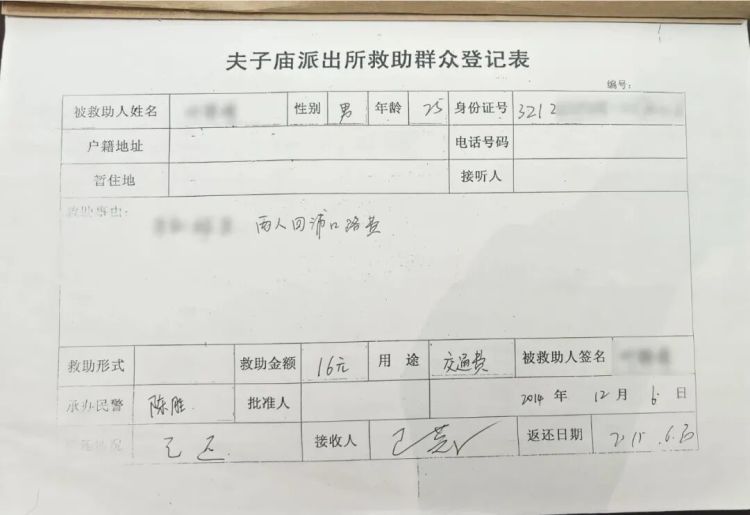 夫子庙派出所救助群众登记表
编号:
被救助人姓名 性别 男 年龄 25 身份证号 3212
户籍地址 电话号码
暂住地 接听人
救助事由:
两人回浦口路费
救助形式 救助金额 16元 用途 交通费 被救助人签名
承办民警 陈胜 批准人 2014年12月6日
已还 接收人 返还日期